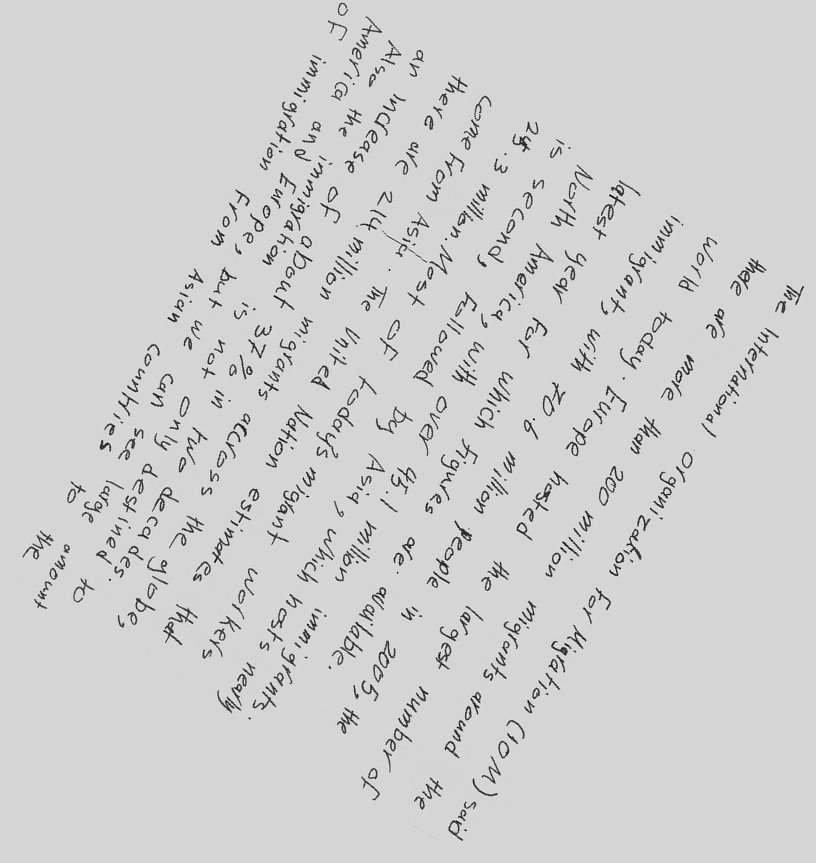 The International Organization For Migration (IOM) said
there are more than 200 million migrants around the
world today. Europe hosted the largest number of
immigrant, with 70.6 million people in 2005, the
latest year for which figures are available.
North America, with over 45.1 million immigrants.
is second, followed by Asia, which hosts nearly
24.3 million. Most of today's migrant workers
come from Asia. The United Nation estimates that
there are 214 million migrants across the globe,
an increase of about 37% in two decades.
Also the immigration is not only destined to
America and Europe, but we can see large amount
of immigration from Asian countries to the